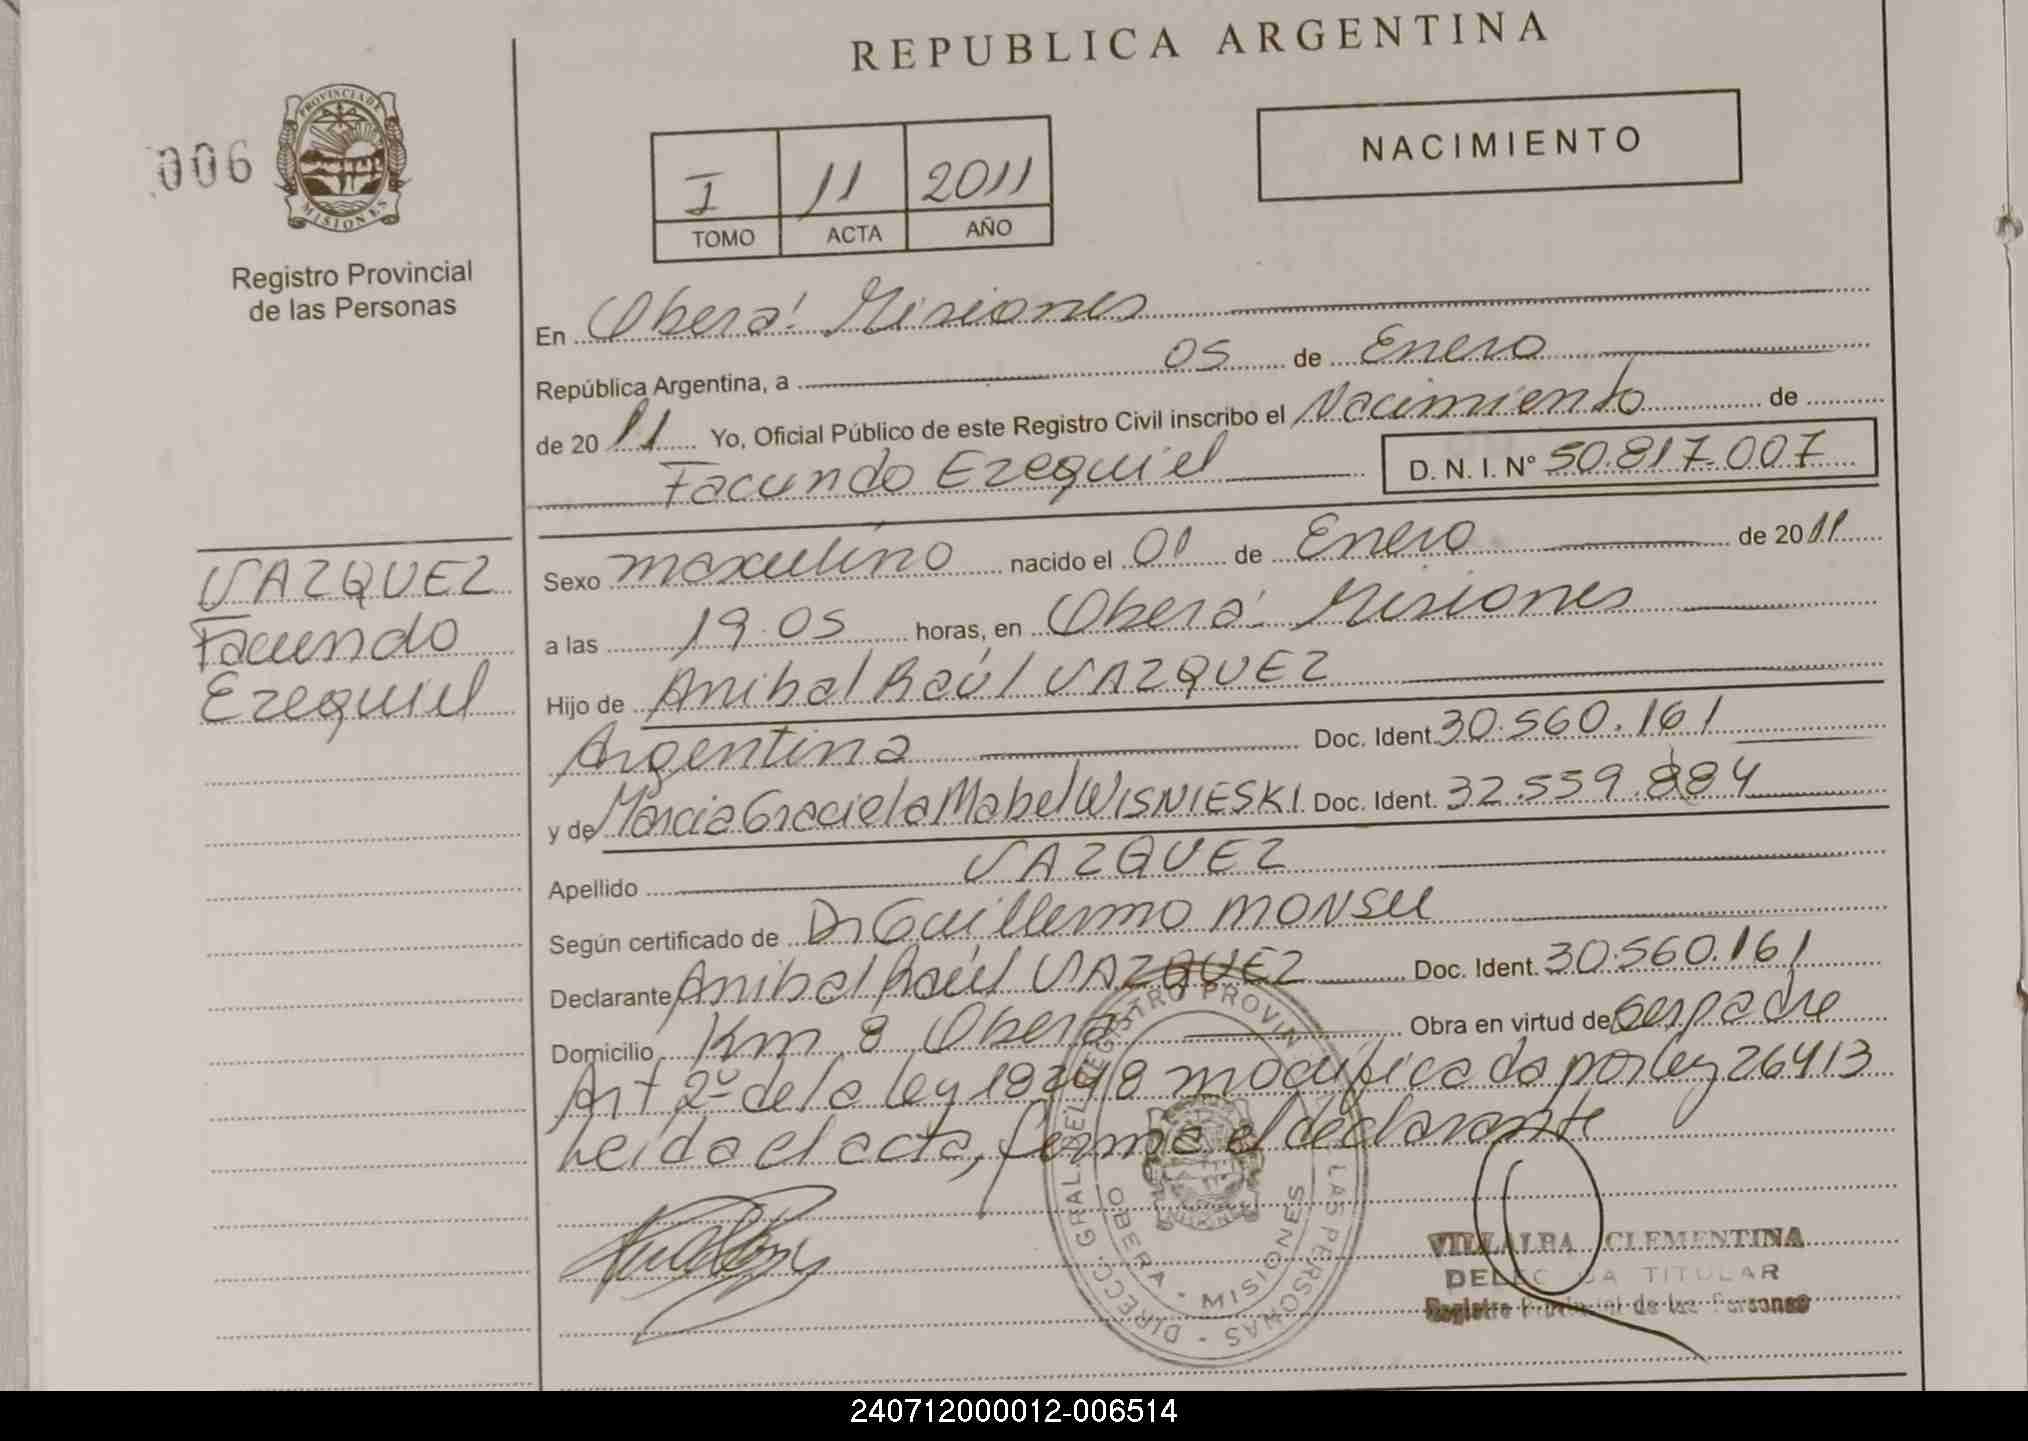 REPUBLICA ARGENTINA
006
PROVINCIA DE
MISIONES
Registro Provincial
de las Personas
I 11 2011
TOMO ACTA AÑO
NACIMIENTO
En Oberá Misiones
República Argentina, a 05 de Enero
de 2011 Yo, Oficial Público de este Registro Civil inscribo el Nacimiento de
Facundo Ezequiel D. N. I. N° 50.817.007
VAZQUEZ
Facundo
Ezequiel
Sexo masculino nacido el 01 de Enero de 2011
a las 19.05 horas, en Oberá Misiones
Hijo de Anibal Raúl VAZQUEZ
Argentina Doc. Ident. 30.560.161
y de Marcia Graciela Mabel WISNIESKI Doc. Ident. 32.559.884
Apellido VAZQUEZ
Según certificado de Dr Guillermo MONSU
Declarante Anibal Raúl VAZQUEZ Doc. Ident. 30.560.161
Domicilio Km 8 Oberá Obra en virtud de ser padre
Art 2º de la ley 18248 modificada por ley 26413
Leida el acta, firma el declarante
DIRECC. GRAL. DEL REGISTRO PROVIN. LAS PERSONAS
OBERA - MISIONES
VILLALBA CLEMENTINA
DELEGADA TITULAR
Registro Provincial de las Personas
240712000012-006514